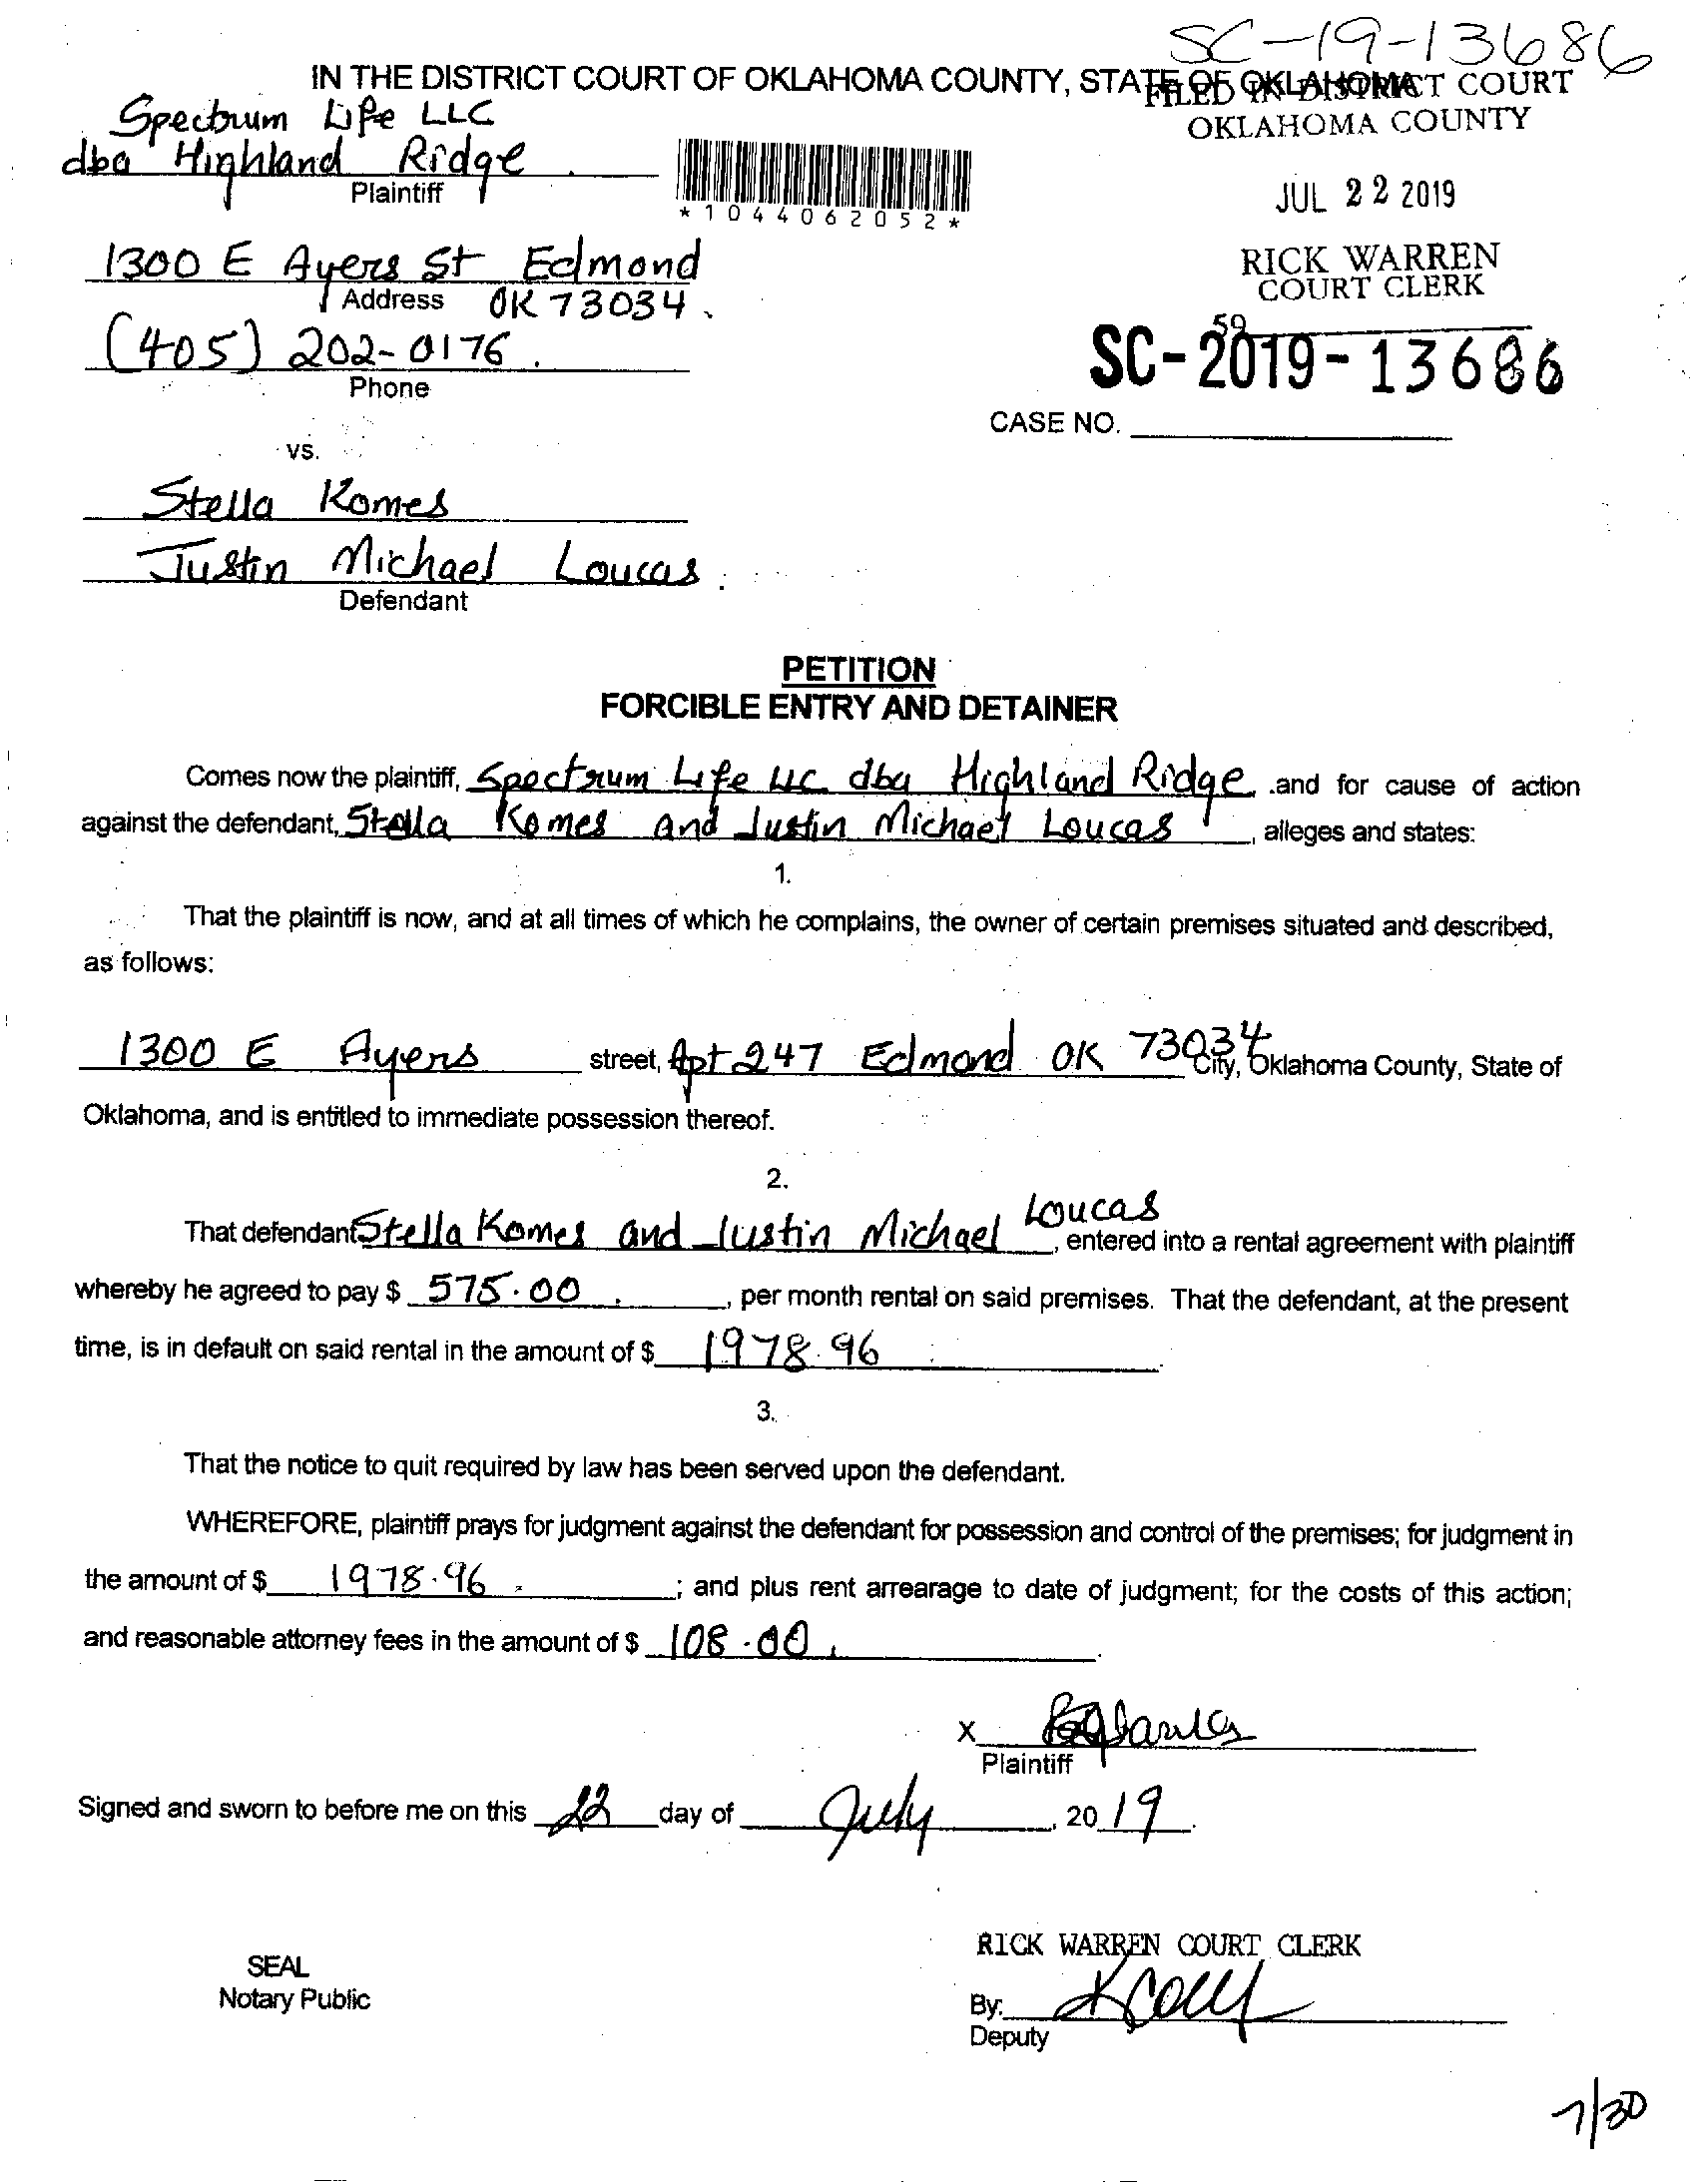 SC-19-13686
IN THE DISTRICT COURT OF OKLAHOMA COUNTY, STATE OF OKLAHOMA
FILED IN DISTRICT COURT
OKLAHOMA COUNTY
Spectrum Life LLC
dba Highland Ridge
Plaintiff
*1044062052*
JUL 22 2019
1300 E Ayers St Edmond
Address OK 73034.
RICK WARREN
COURT CLERK
59
(405) 202-0176.
Phone
SC-2019-13686
CASE NO.
vs.
Stella Komes
Justin Michael Loucas
Defendant
PETITION
FORCIBLE ENTRY AND DETAINER
Comes now the plaintiff, Spectrum Life LLC dba Highland Ridge, and for cause of action
against the defendant, Stella Komes and Justin Michael Loucas, alleges and states:
1.
That the plaintiff is now, and at all times of which he complains, the owner of certain premises situated and described,
as follows:
1300 E Ayers street, Apt 247 Edmond OK 73034 City, Oklahoma County, State of
Oklahoma, and is entitled to immediate possession thereof.
2.
That defendant Stella Komes and Justin Michael Loucas, entered into a rental agreement with plaintiff
whereby he agreed to pay $ 575.00, per month rental on said premises. That the defendant, at the present
time, is in default on said rental in the amount of $ 1978.96.
3.
That the notice to quit required by law has been served upon the defendant.
WHEREFORE, plaintiff prays for judgment against the defendant for possession and control of the premises; for judgment in
the amount of $ 1978.96; and plus rent arrearage to date of judgment; for the costs of this action;
and reasonable attorney fees in the amount of $ 108.00.
X
Plaintiff
Signed and sworn to before me on this 22 day of July, 2019.
RICK WARREN COURT CLERK
SEAL
Notary Public
By:
Deputy
7/30